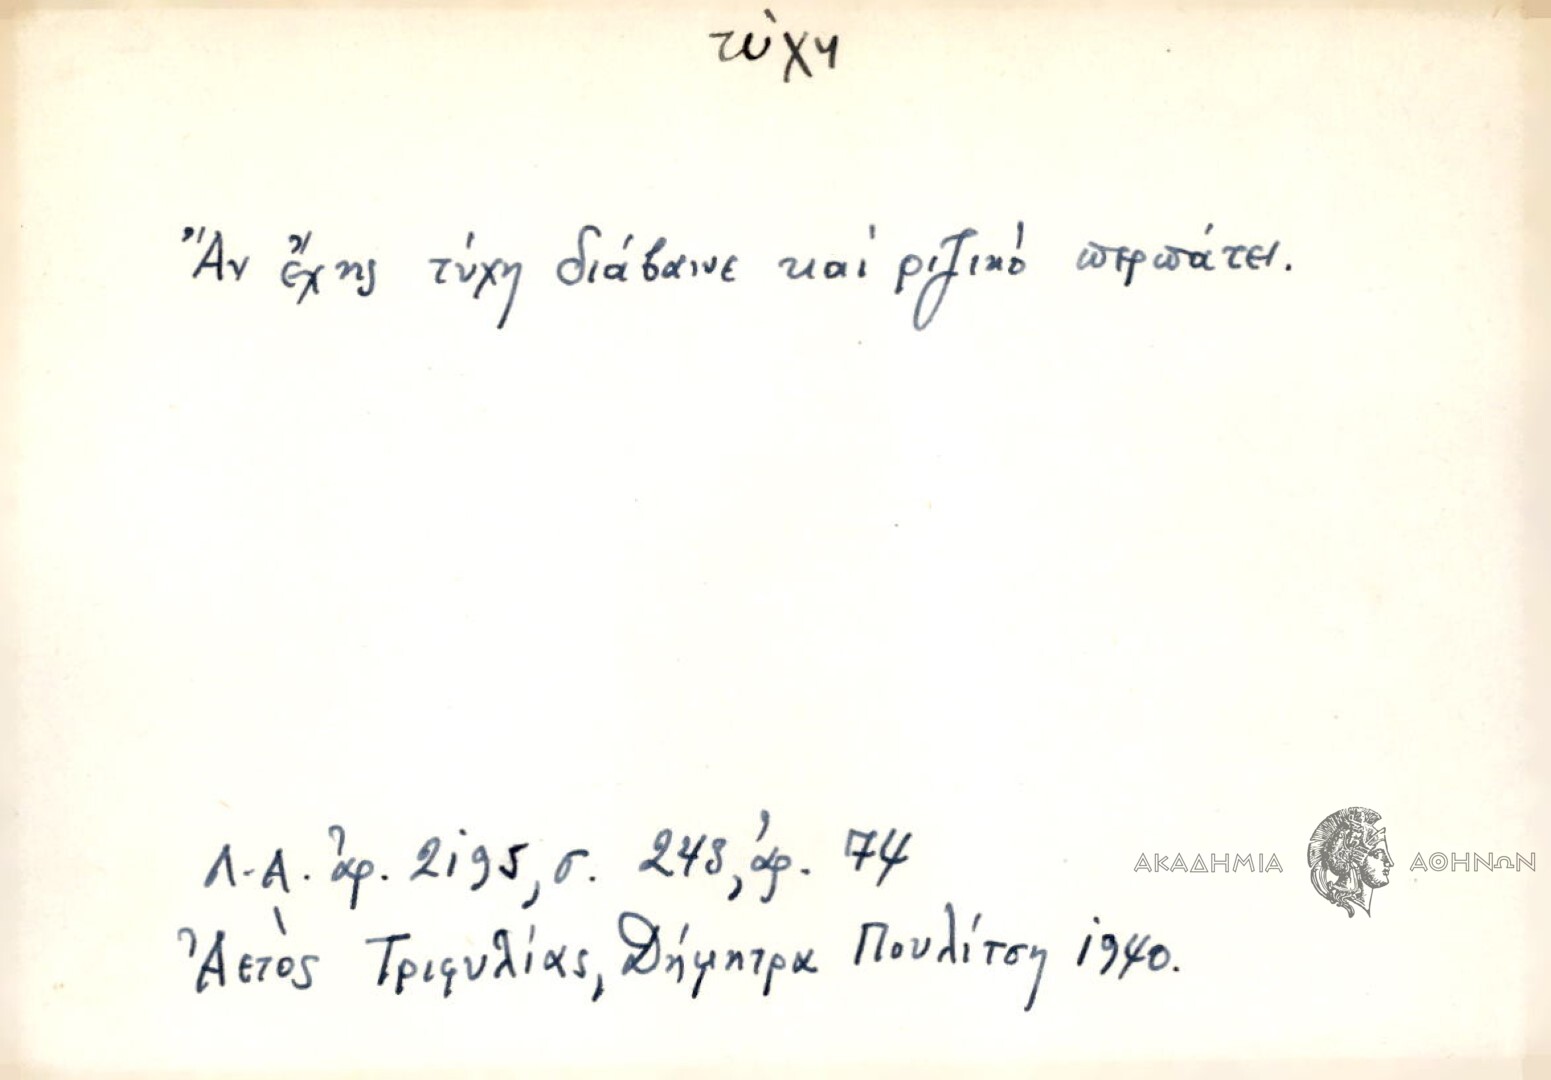 τύχη
Ἂν ἔχης τύχη διάβαινε καί ριζικό περπάτει.
Λ.Α. ἀρ. 2195, σ. 243, ἀρ. 74
Ἀετὸς Τριφυλίας, Δήμητρα Πουλίτση 1940.
ΑΚΑΔΗΜΙΑ ΑΘΗΝΩΝ